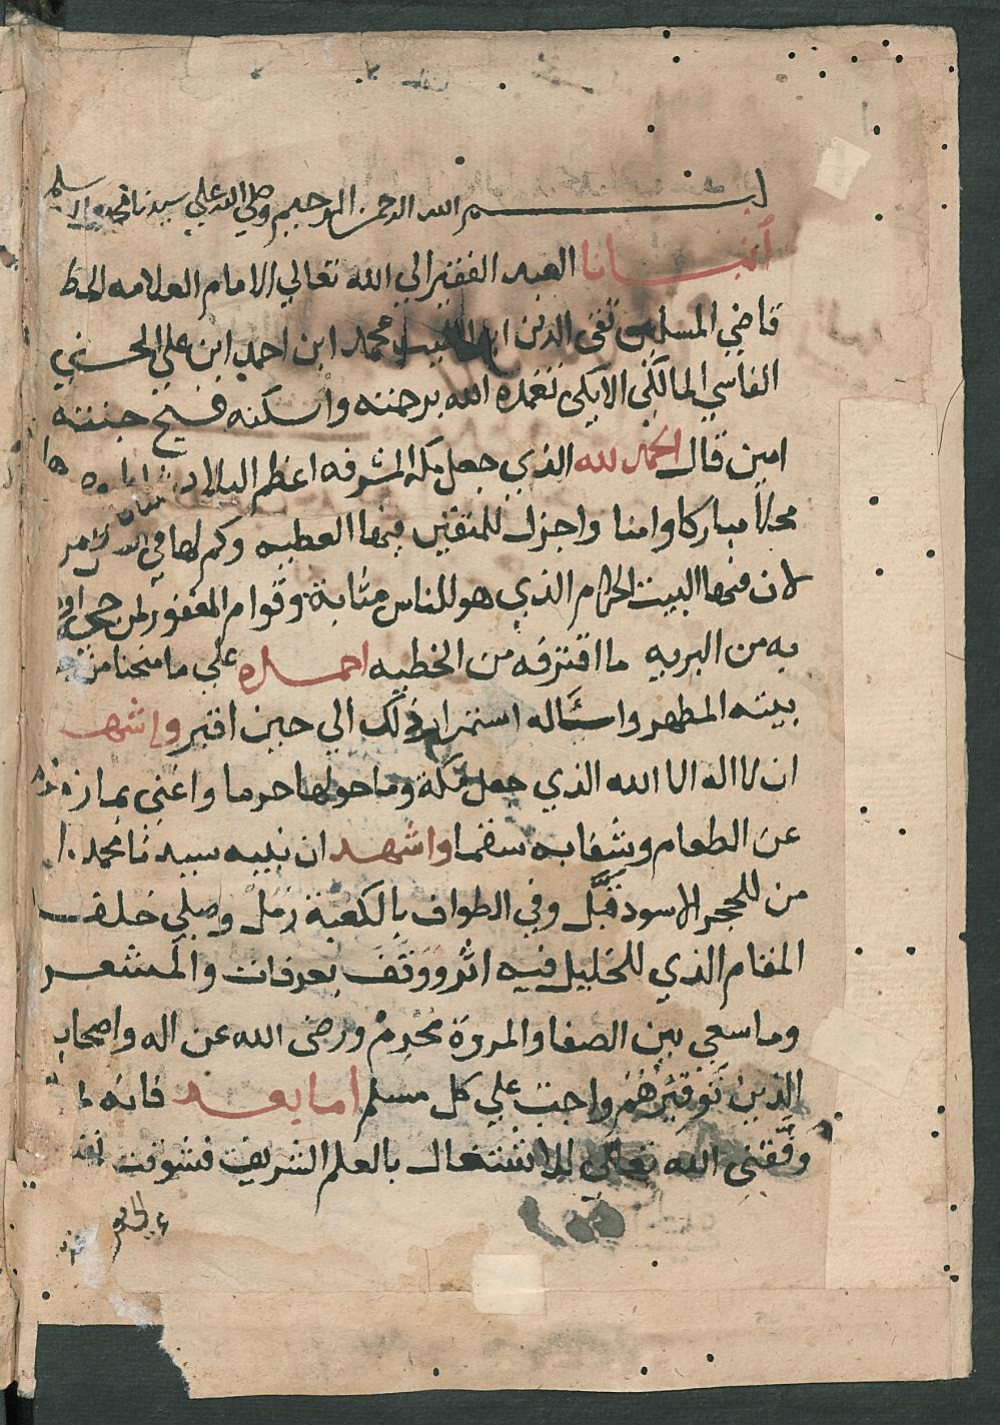 بسم الله الرحمن الرحيم وصلي الله علي سيدنا محمد واله وسلم
أنبانا العبد الفقير الي الله تعالي الامام العلامه الحافظ
قاضي المسلمين تقي الدين ابو الطيب محمد ابن احمد ابن علي الحسني
الفاسي المالكي الايكي تغمده الله برحمته واسكنه فسيح جنته
امين قال الحمد لله الذي جعل مكه المشرفه اعظم البلاد
محلا مباركا وامنا واجزل للمتقين فيها العطيه وكم لها في
لان فيها البيت الحرام الذي هو للناس مثابة وقوام المغفور لمن حج
به من البريه ما اقترفه من الخطيه احمده علي ما منحنا من
بيته المطهر واسئاله استمرار ذلك الي حين اقبر واشهد
ان لا اله الا الله الذي جعل مكة وما حولها حرما واغني بماء زمزم
عن الطعام وشفا به سقما واشهد ان نبيه سيدنا محمدا
من للحجر الاسود قبَّل وفي الطواف بالكعبة رمل وصلي خلف
المقام الذي للخليل فيه اثر ووقف بعرفات والمشعر
وما سعي بين الصفا والمروة محرم ورضى الله عن اله واصحابه
الذين توقيرهم واجب علي كل مسلم اما بعد فانه لما
وفَّقني الله تعالي للاشتغال بالعلم الشريف فتشوقت